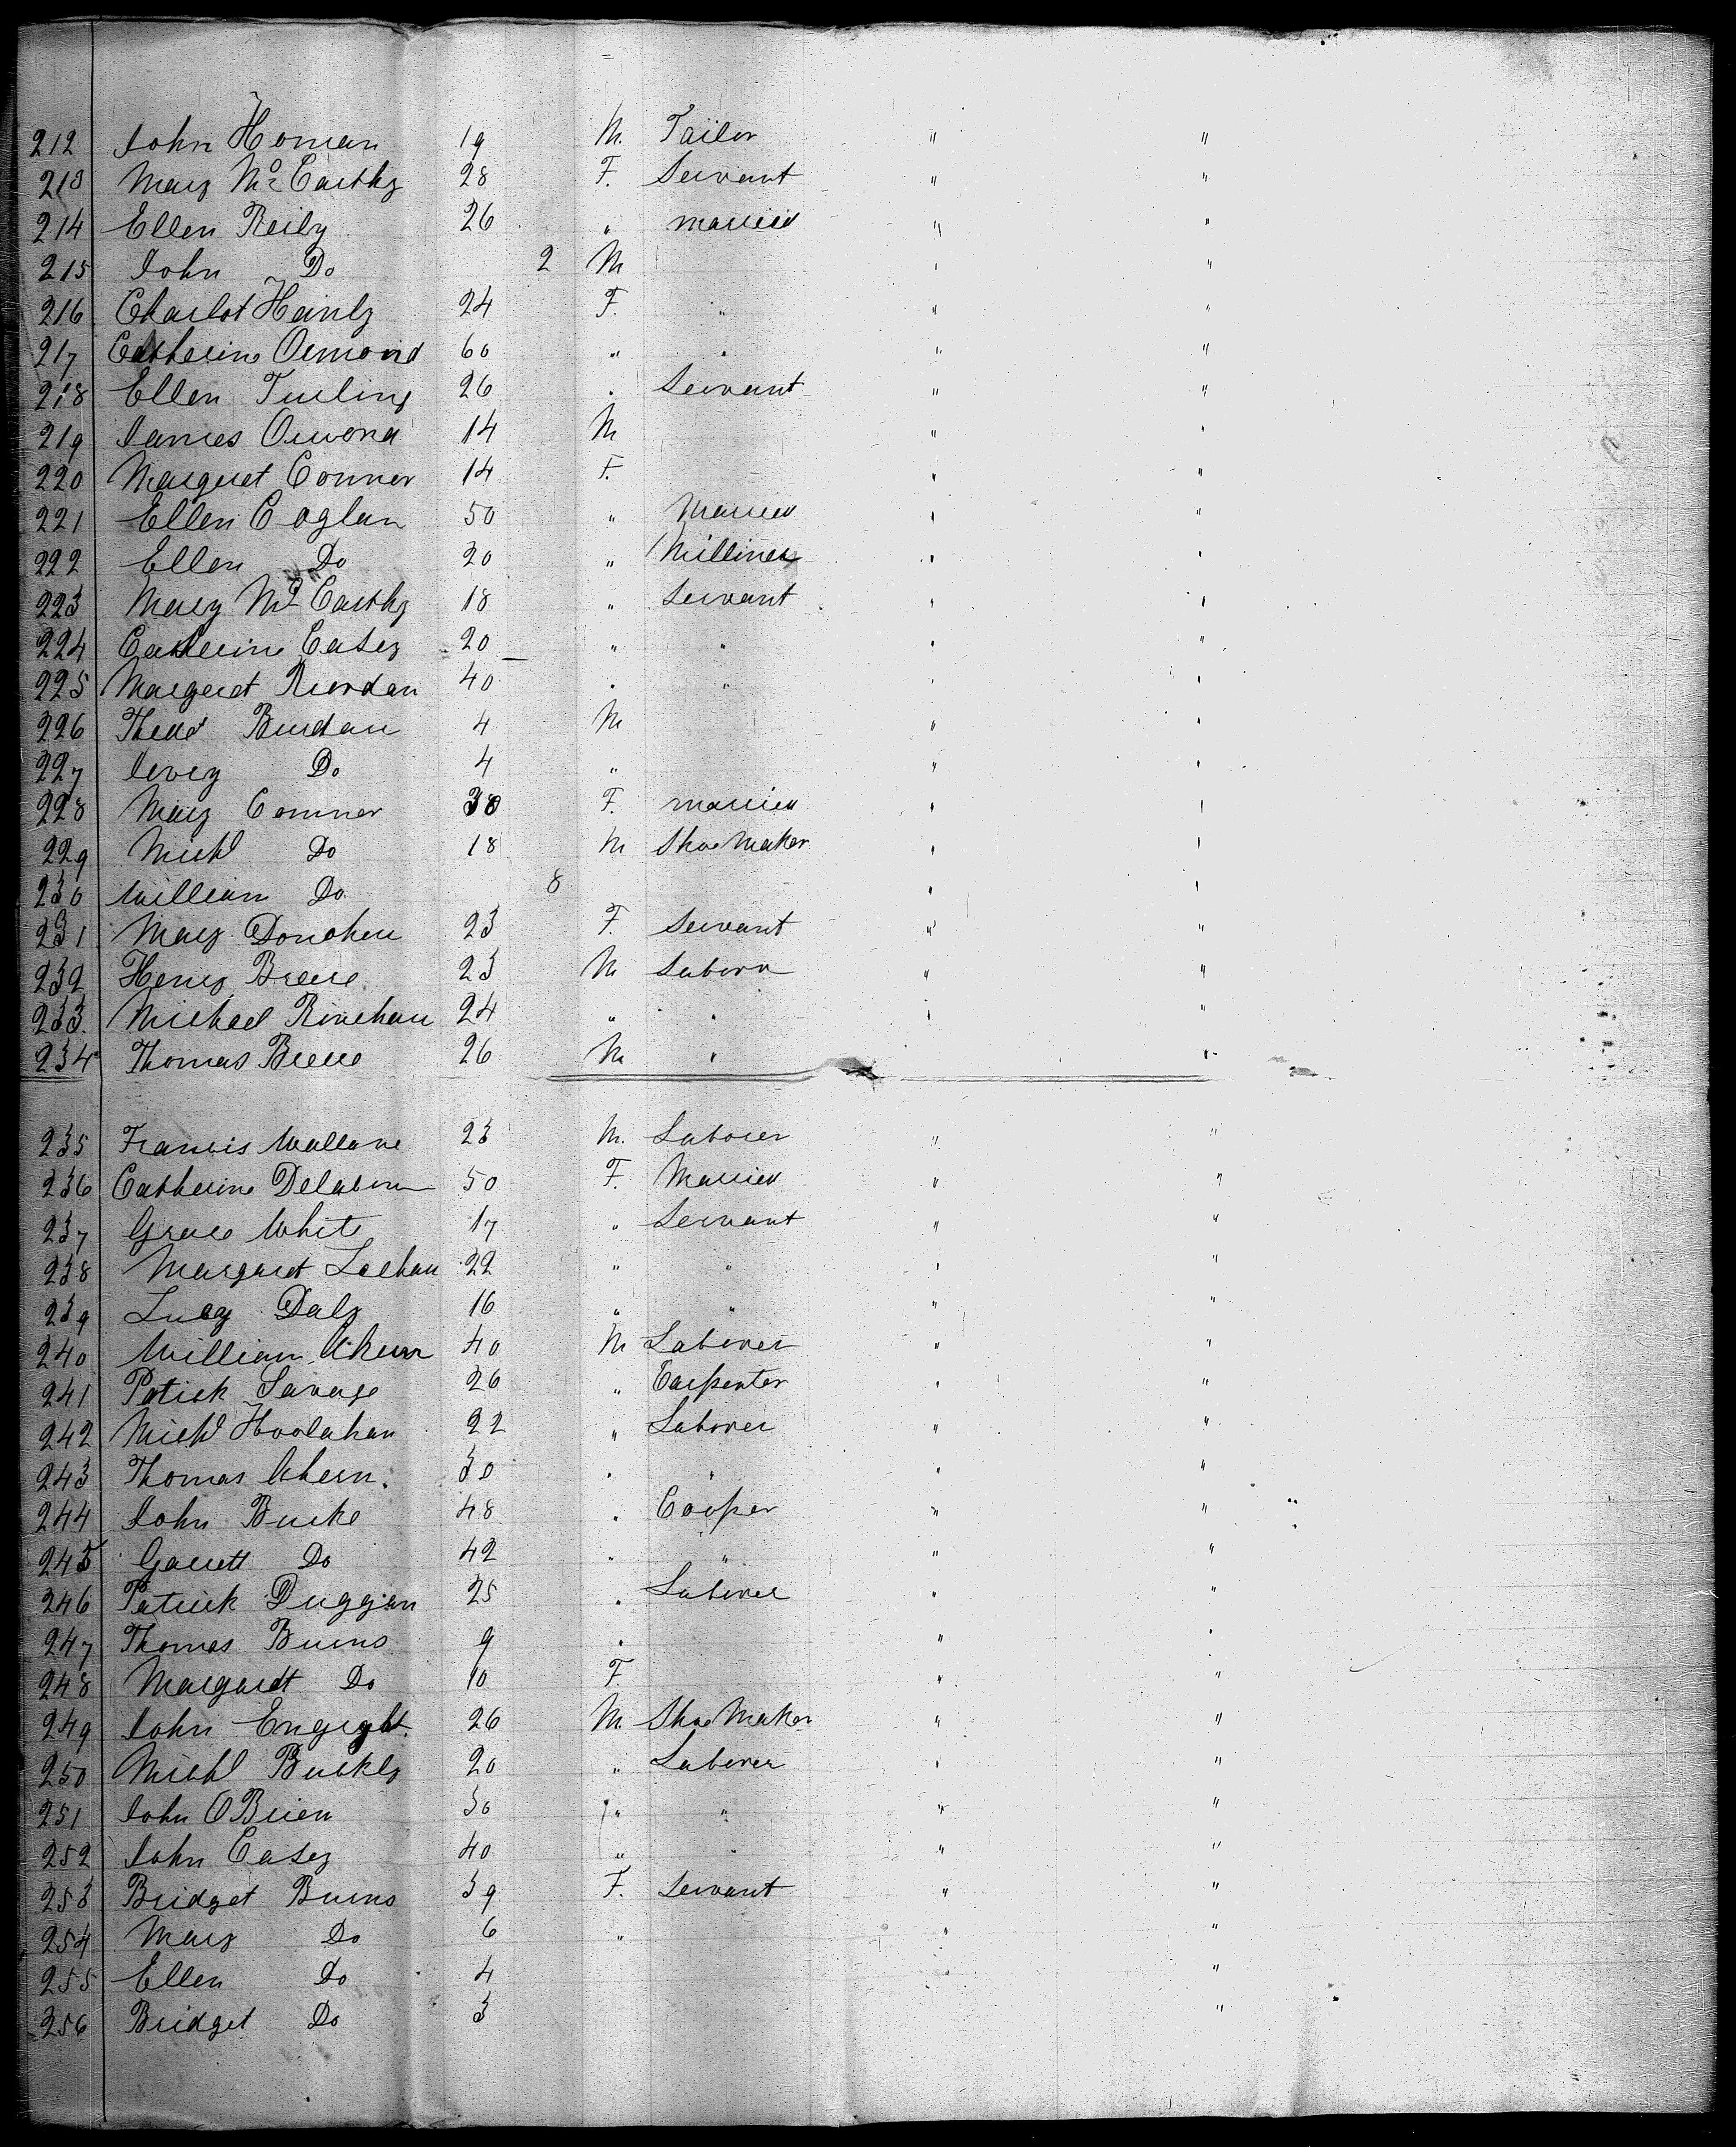 212 John Homan 19 M. Tailor " "
213 Mary Mc Carthy 28 F. Servant " "
214 Ellen Reily 26 " married " "
215 John Do 2 M " "
216 Charlot Hanly 24 F. " " "
217 Catherine Ormond 60 " " " "
218 Ellen 26 " Servant " "
219 James Ormond 14 M " "
220 Margret Conner 14 F. " "
221 Ellen Coglan 50 " Married " "
222 Ellen Do 20 " Milliner " "
223 Mary Mc Carthy 18 " Servant " "
224 Catherine Casey 20 " " " "
225 Margeret Riordan 40 " " " "
226 4 M " "
227 Do 4 " " "
228 Mary Conner 38 F. married " "
229 Michl Do 18 M Shoe Maker " "
230 William Do 8 " "
231 Mary Donohue 23 F. Servant " "
232 Henry 23 M Labour " "
233 Michael Rinehan 24 " " " "
234 Thomas 26 M " " "
235 Francis Wallace 23 M. Laborer " "
236 Catherine 50 F. Married " "
237 Grace White 17 " Servant " "
238 Margaret 22 " " " "
239 Lucy Daly 16 " " " "
240 William Ahern 40 M Laborer " "
241 Patick Savage 26 " Carpenter " "
242 Michl Hoolahan 22 " Laborer " "
243 Thomas Ahern. 30 " " " "
244 John Burke 48 " Cooper " "
245 Garrett Do 42 " " " "
246 Patrick Duggan 25 " Laborer " "
247 Thomas Burns 9 " " "
248 Margaret Do 10 F. " "
249 John 26 M Shoe Maker " "
250 Michl Buckly 20 " Laborer " "
251 John O Brien 30 " " " "
252 John Casey 40 " " " "
253 Bridget Burns 39 F. Servant " "
254 Mary Do 6 " " "
255 Ellen Do 4 " "
256 Bridget Do 3 "